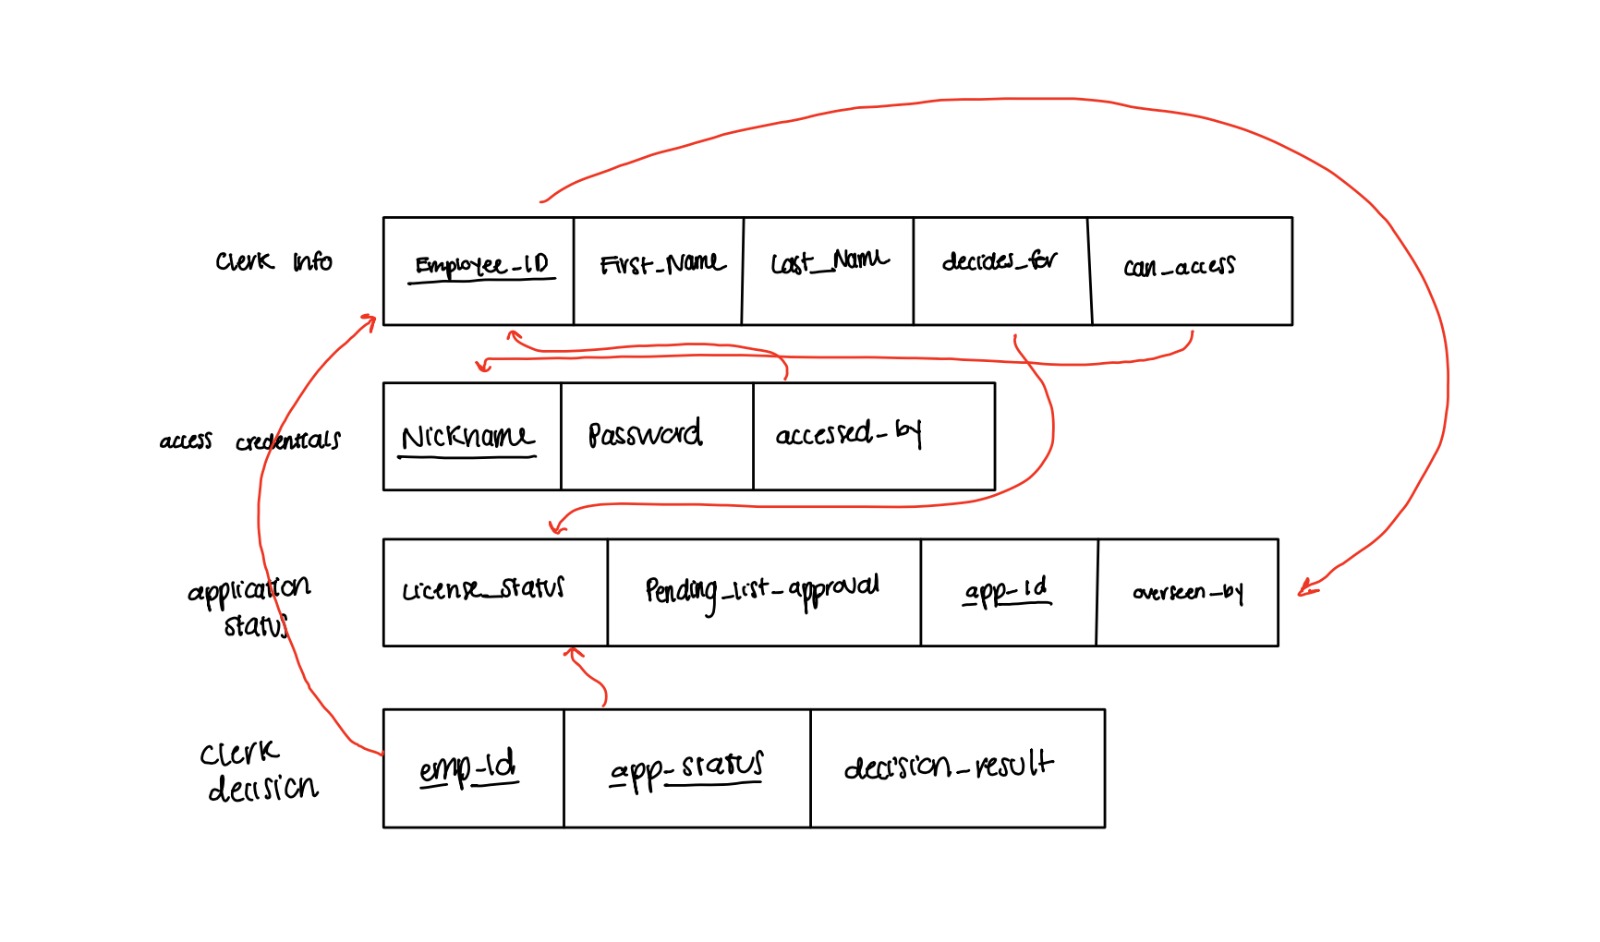 Clerk Info
Employee_ID
First_Name
Last_Name
decides_for
can_access
access credentials
Nickname
Password
accessed_by
application
status
License_status
Pending_list_approval
app_id
overseen_by
Clerk
decision
emp_id
app_status
decision_result